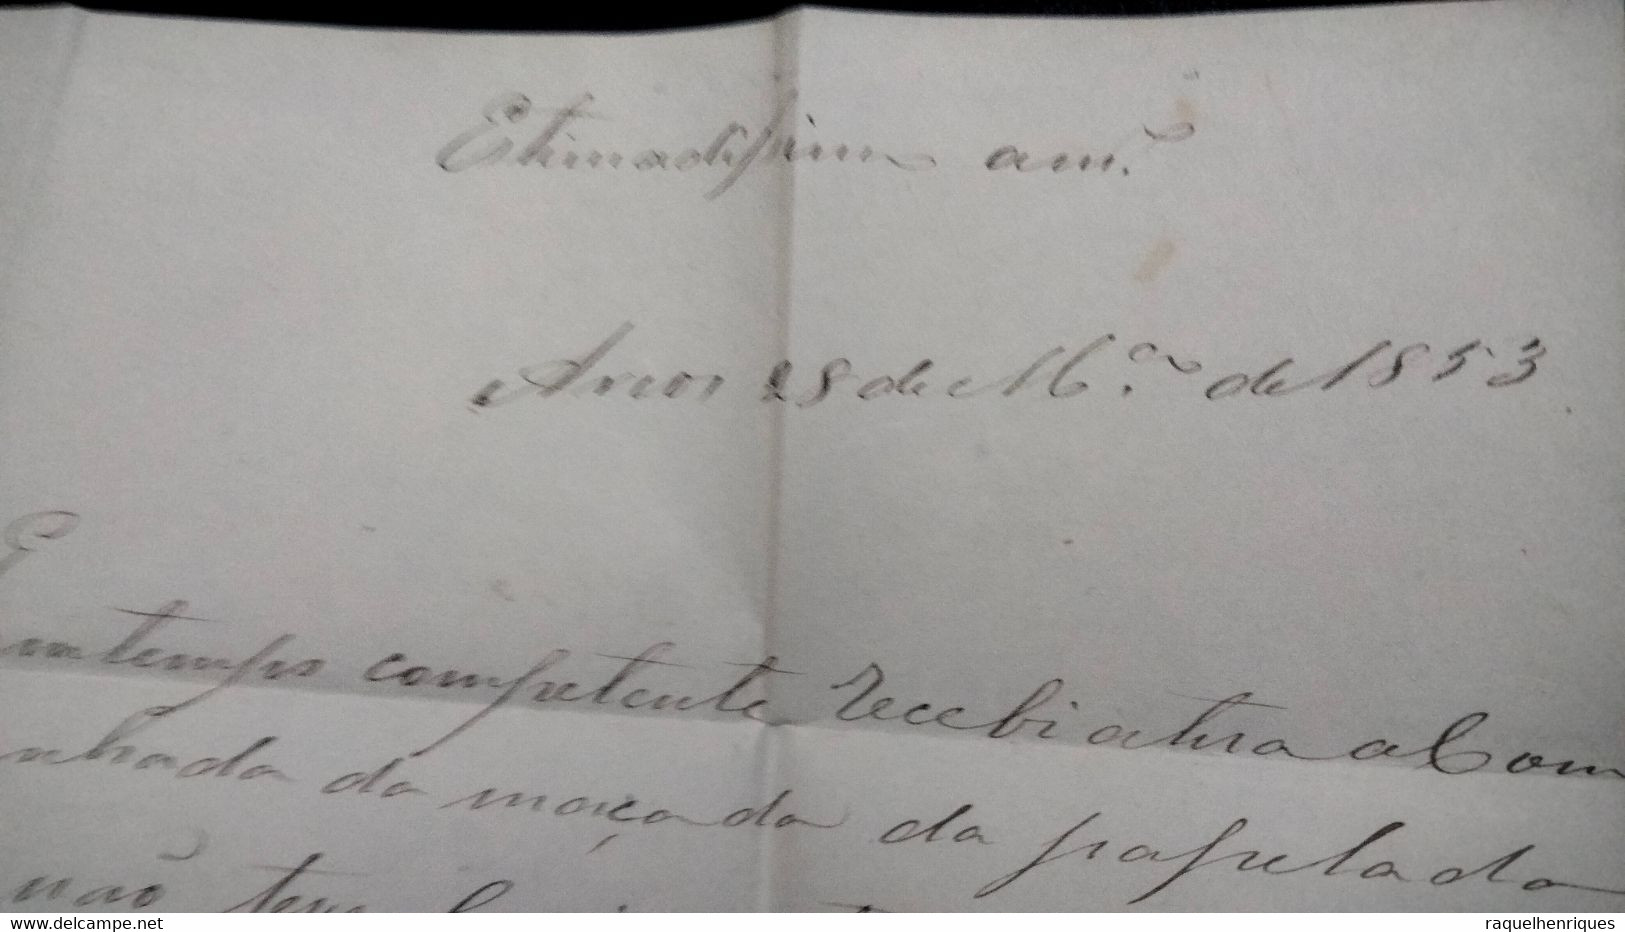 Estimadissimo am.º
Arcos 28 de M.ço de 1853
Em tempo competente recebi a tua a Com
nhada da maçada da papelada
não tem
delcampe.net
raquelhenriques